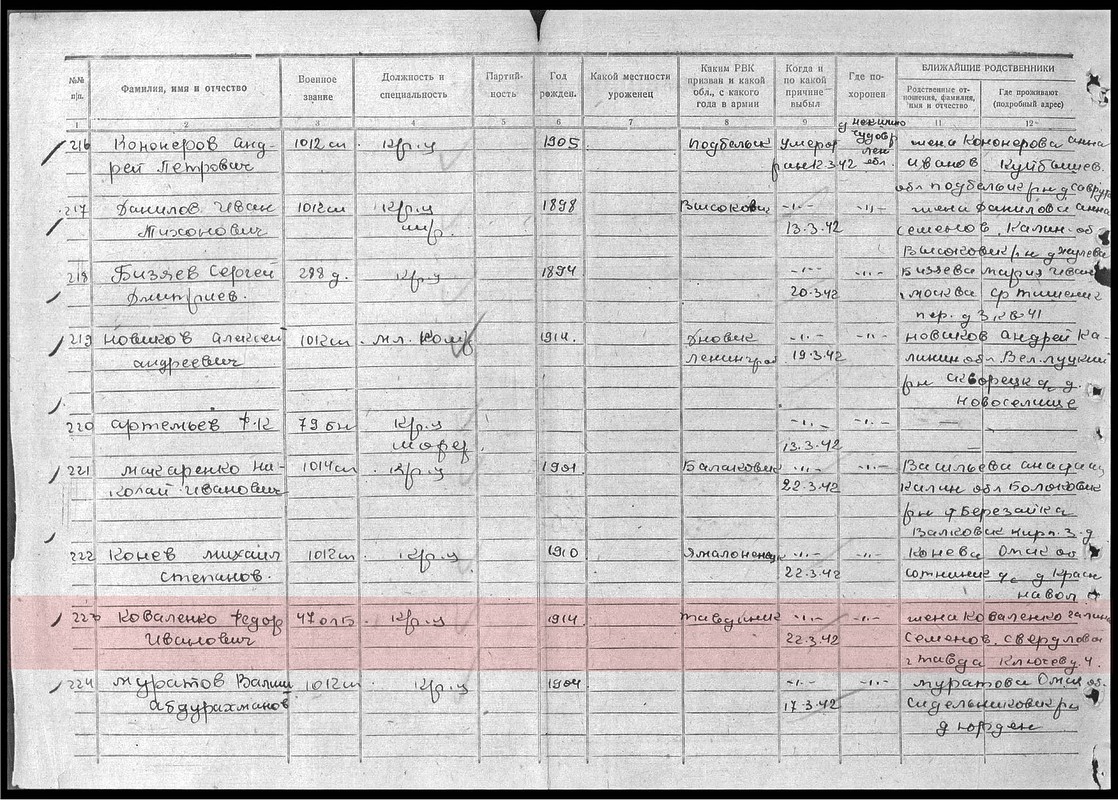 №№ п/п. Фамилия, имя и отчество Военное звание Должность и специальность Партий-ность Год рожден. Какой местности уроженец Каким РВК призван и какой обл., с какого года в армии Когда и по какой причине выбыл Где по-хоронен БЛИЖАЙШИЕ РОДСТВЕННИКИ Родственные от-ношения, фамилия, имя и отчество Где проживают (подробный адрес)
1 2 3 4 5 6 7 8 9 10 11 12
216 Кононеров Анд- 1012 сп кр-ц 1905 Подбельск умер от жена Кононерова Анна
рей Петрович ран 12.3.42 обл. Иванов Куйбышев.
обл Подбельск рн д
217 Данилов Иван 1012 сп кр-ц 1898 Высокович -"- -"- жена Данилова Анна
Тихонович 13.3.42 Семенов. Калин. об
Высокович рн д
218 Бизяев Сергей 298 д. кр-ц 1894 -"- -"- Бизяева Мария Иван
Дмитриев. 20.3.42 Москва ср Тишенск
пер. д 3 кв 41
219 Новиков Алексей 1012 сп мл. ком 1914. -"- -"- Новиков Андрей Ка-
Андреевич Ленинград 19.3.42 линин обл. Вел. Луцкий
рн д.
Новоселище
220 Артемьев Ф.К 79 бн кр-ц -"- -"- —
шофер. 13.3.42 —
221 Макаренко Ни- 1014 сп кр-ц 1901 Балакович -"- -"- Васильева
колай Иванович 22.3.42 Калин обл
рн Березайка
3. д
222 Конев Михаил 1012 сп кр-ц 1910 Ямалоненецк -"- -"- Конева Омск об
Степанов. 22.3.42 д Красн
223 Коваленко Федор 47 олб кр-ц 1914 Тавдинск -"- жена Коваленко Галина
Иванович 22.3.42 Семенов. Свердлов
г Тавда Ключеву 4.
224 Муратов Валии 1012 сп кр-ц 1904 -"- -"- Муратова Омск об-
Абдурахманов 17.3.42 Сидельникович рн
д Юрден